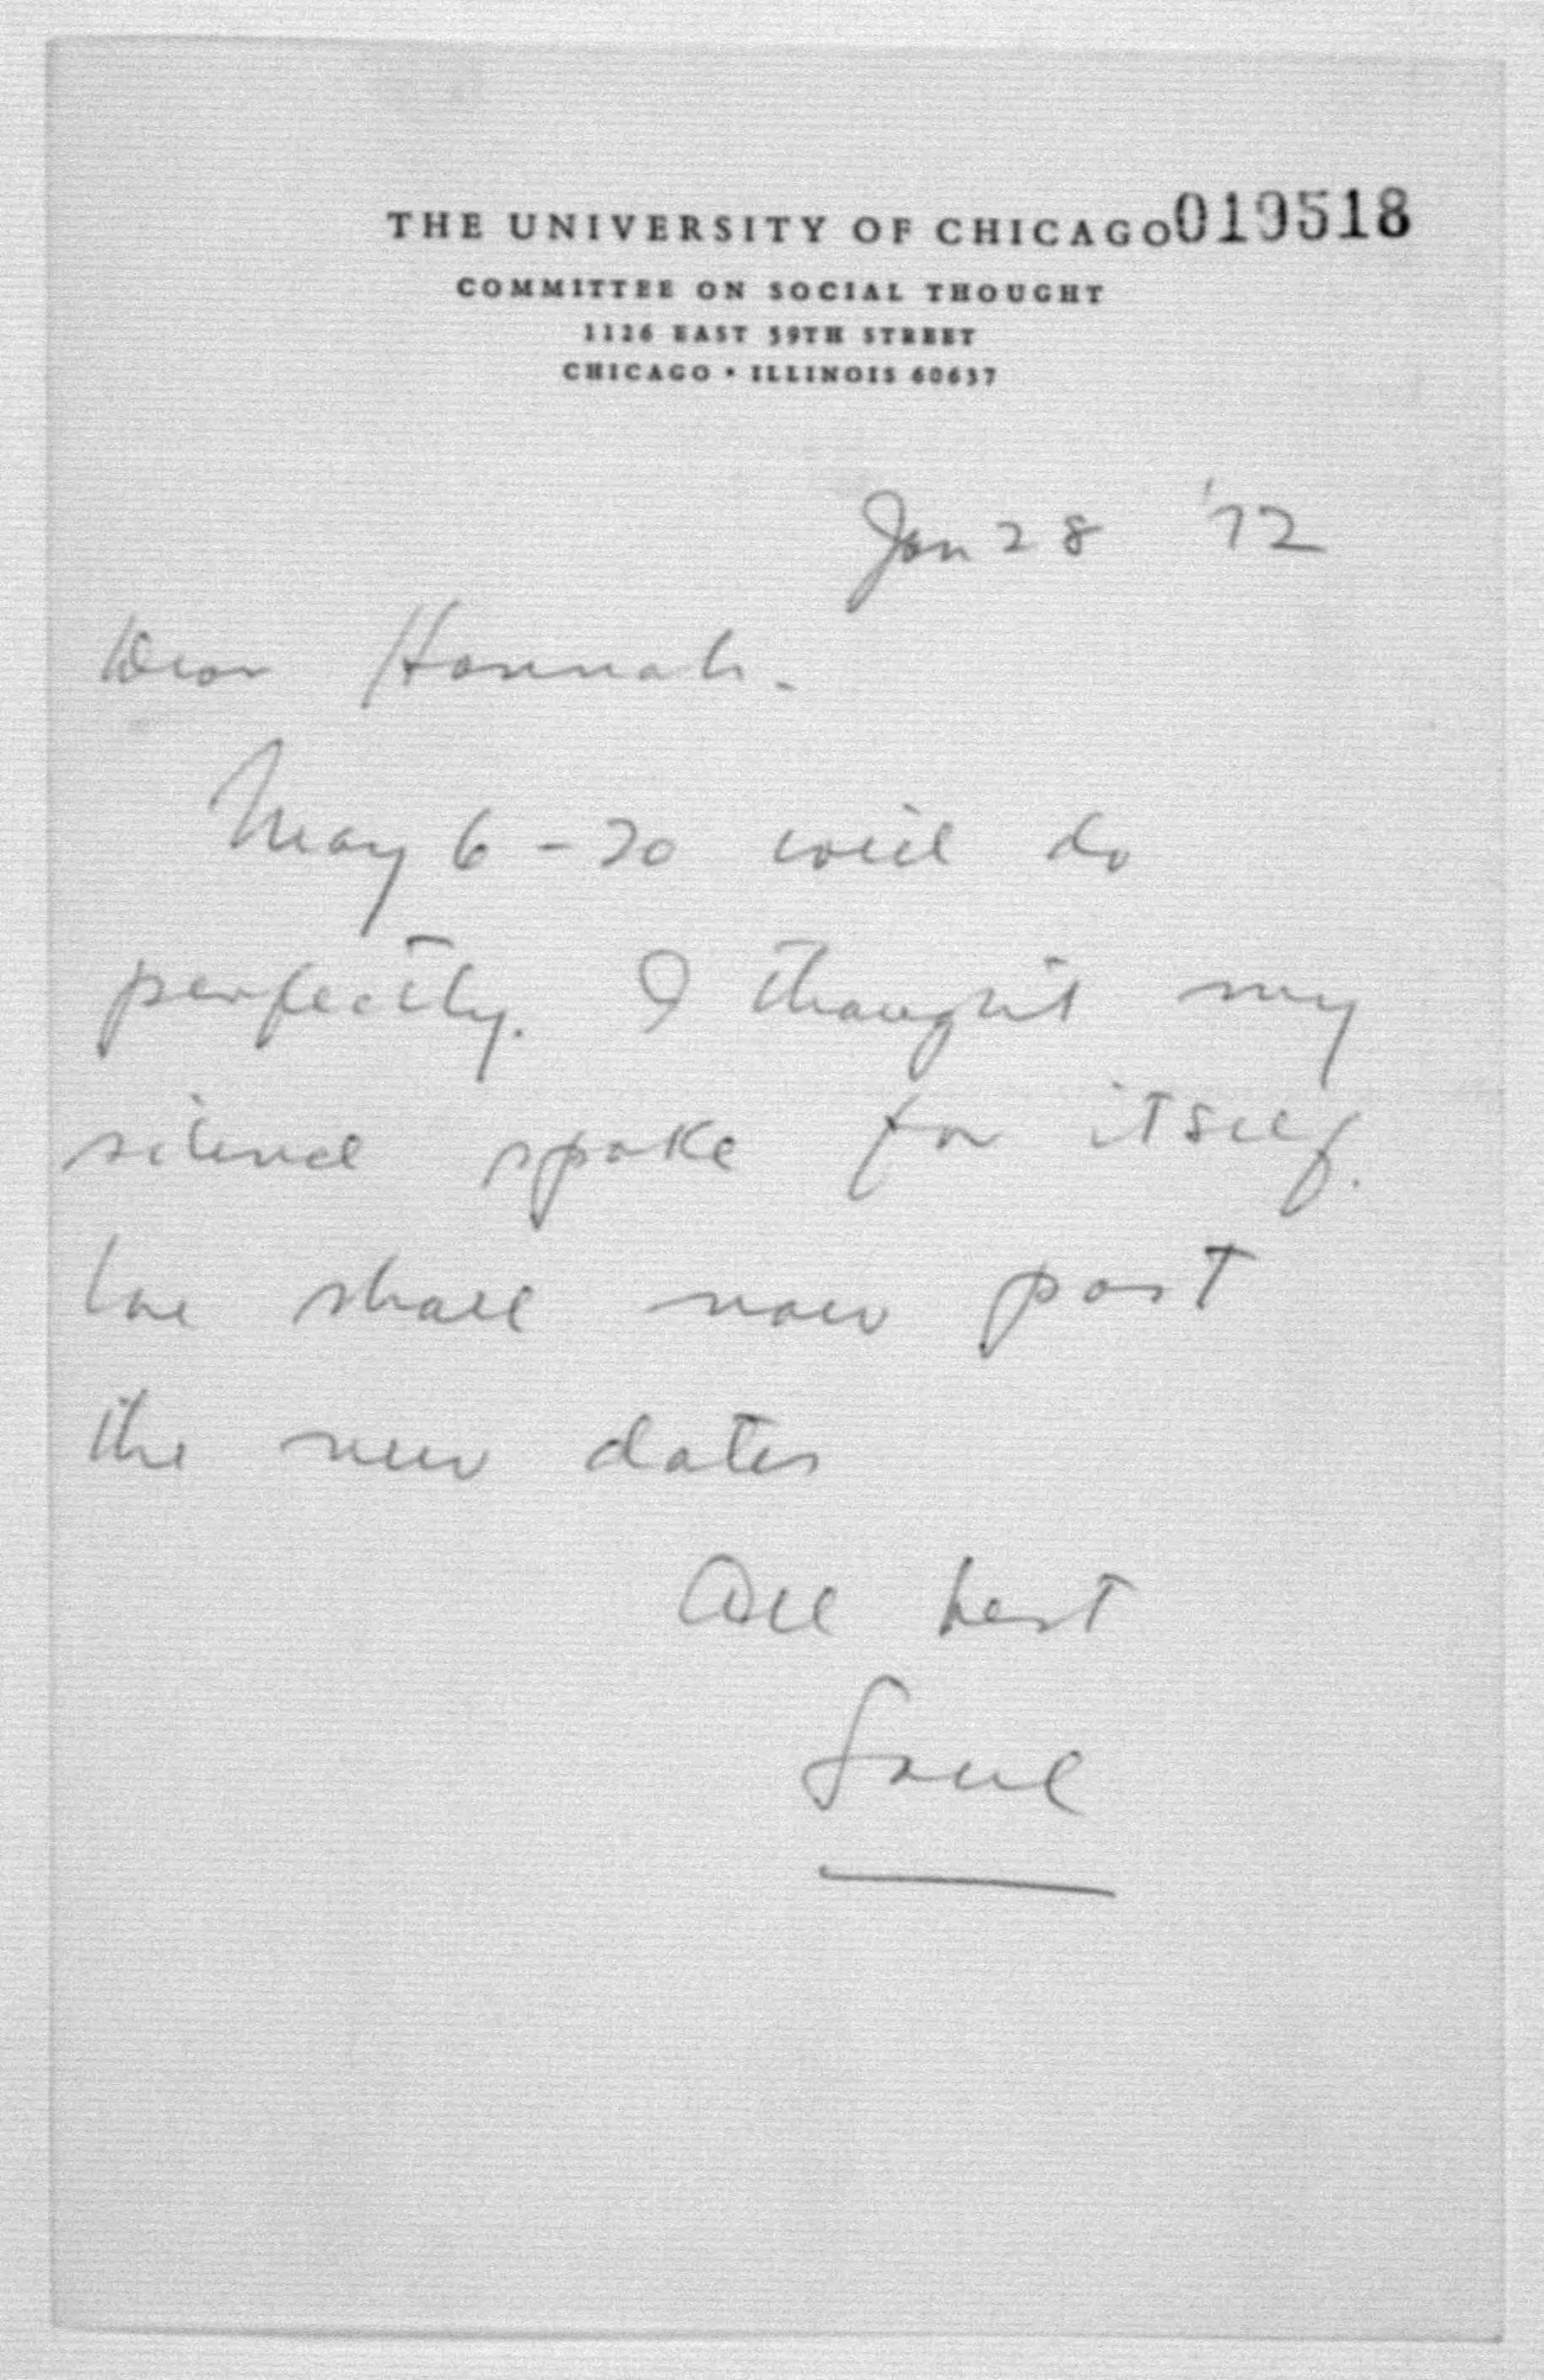 THE UNIVERSITY OF CHICAGO 019518
COMMITTEE ON SOCIAL THOUGHT
1126 EAST 59TH STREET
CHICAGO • ILLINOIS 60637
Jan 28 '72
Dear Hannah.
May 6-20 will do
perfectly. I thought my
silence spoke for itself.
We shall now post
the new dates
All best
Saul